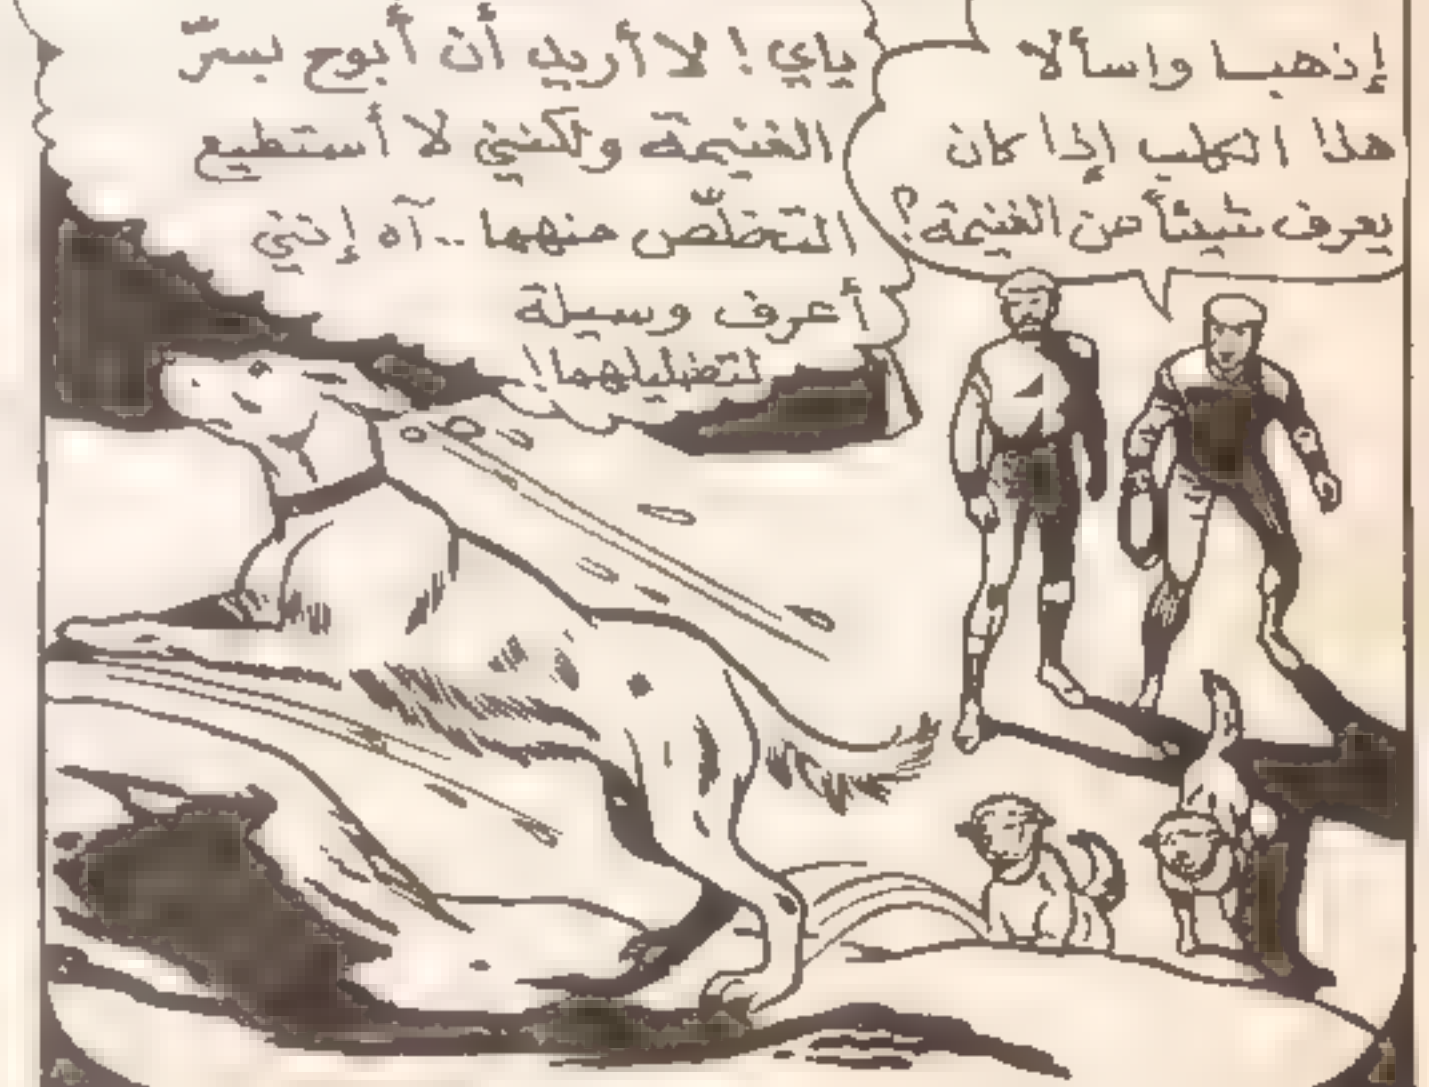 إذهبا واسألا
هذا الكلب إذا كان
يعرف شيئاً عن الغنيمة؟
ياي! لا أريد أن أبوح بسرّ
الغنيمة ولكنني لا أستطيع
التخلّص منهما .. آه إنني
أعرف وسيلة
لتضليلهما!